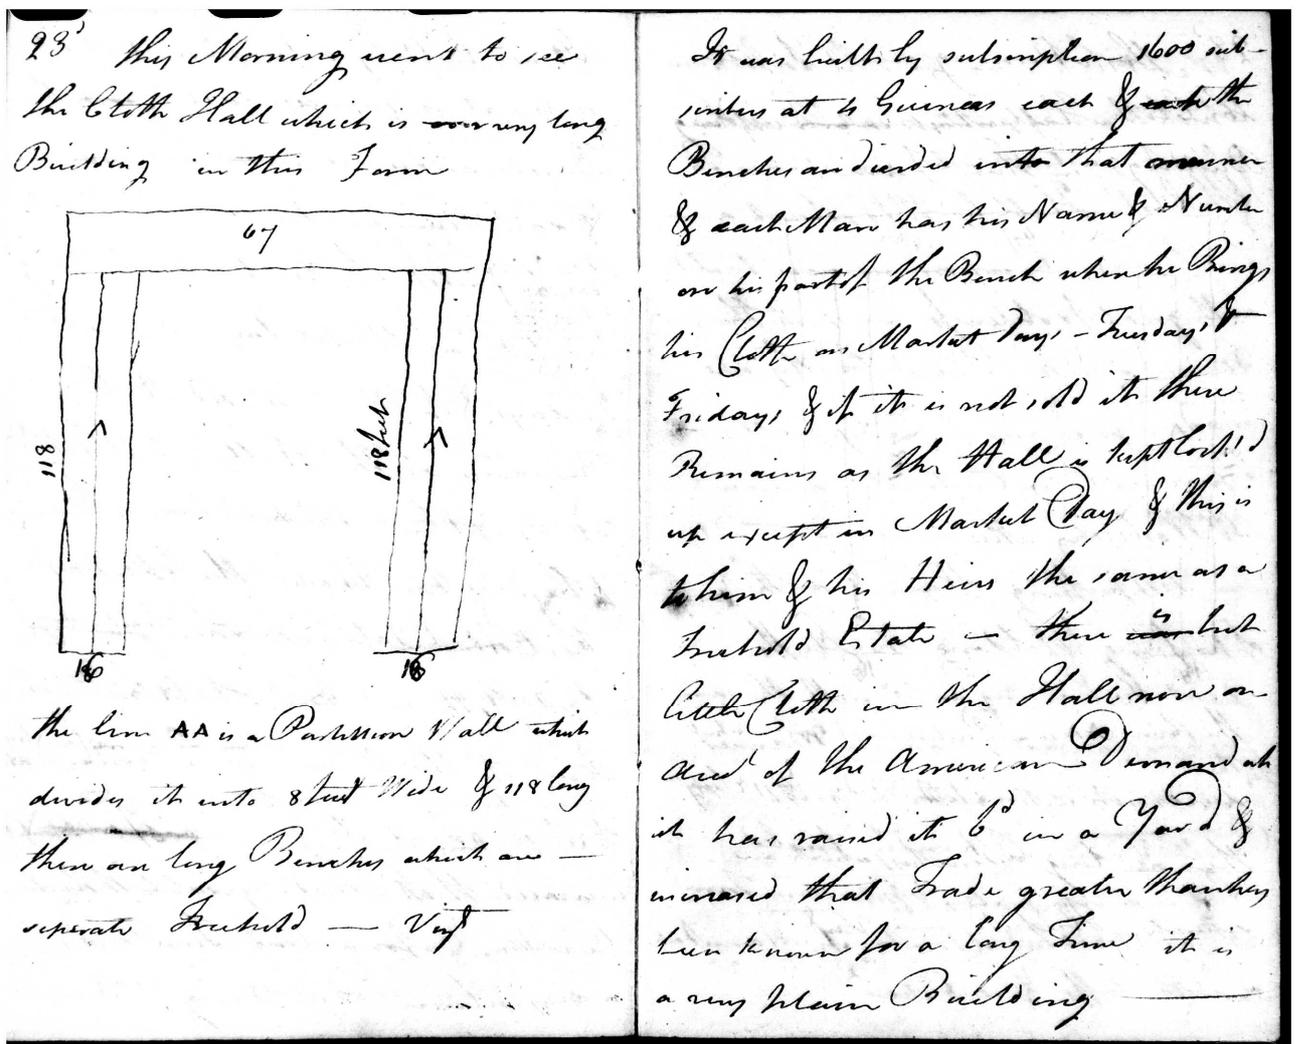 23d this Morning went to see
the Cloth Hall which is a very long
Building in this Form
67
118
118 feet
16
16
the line AA is a Partition Wall which
divides it into 8 feet Wide & 118 long
there are long Benches which are —
seperate Freehold — Vizt
It was built by subscription 1600 sub-
scribers at 4 Guineas each & each the
Benches are divided into that manner
& each Man has his Name & Number
on his part of the Bench where he Brings
his Cloth on Market Days - Tuesdays &
Fridays & if it is not sold it there
Remains as the Hall is kept lock'd
up except on Market Day & this is
to him & his Heirs the same as a
Freehold Estate — there is but
little Cloth in the Hall now on
acct of the American Demand as
it has raised it 6d in a Yard &
increased that Trade greater than has
been known for a long Time it is
a very plain Building —